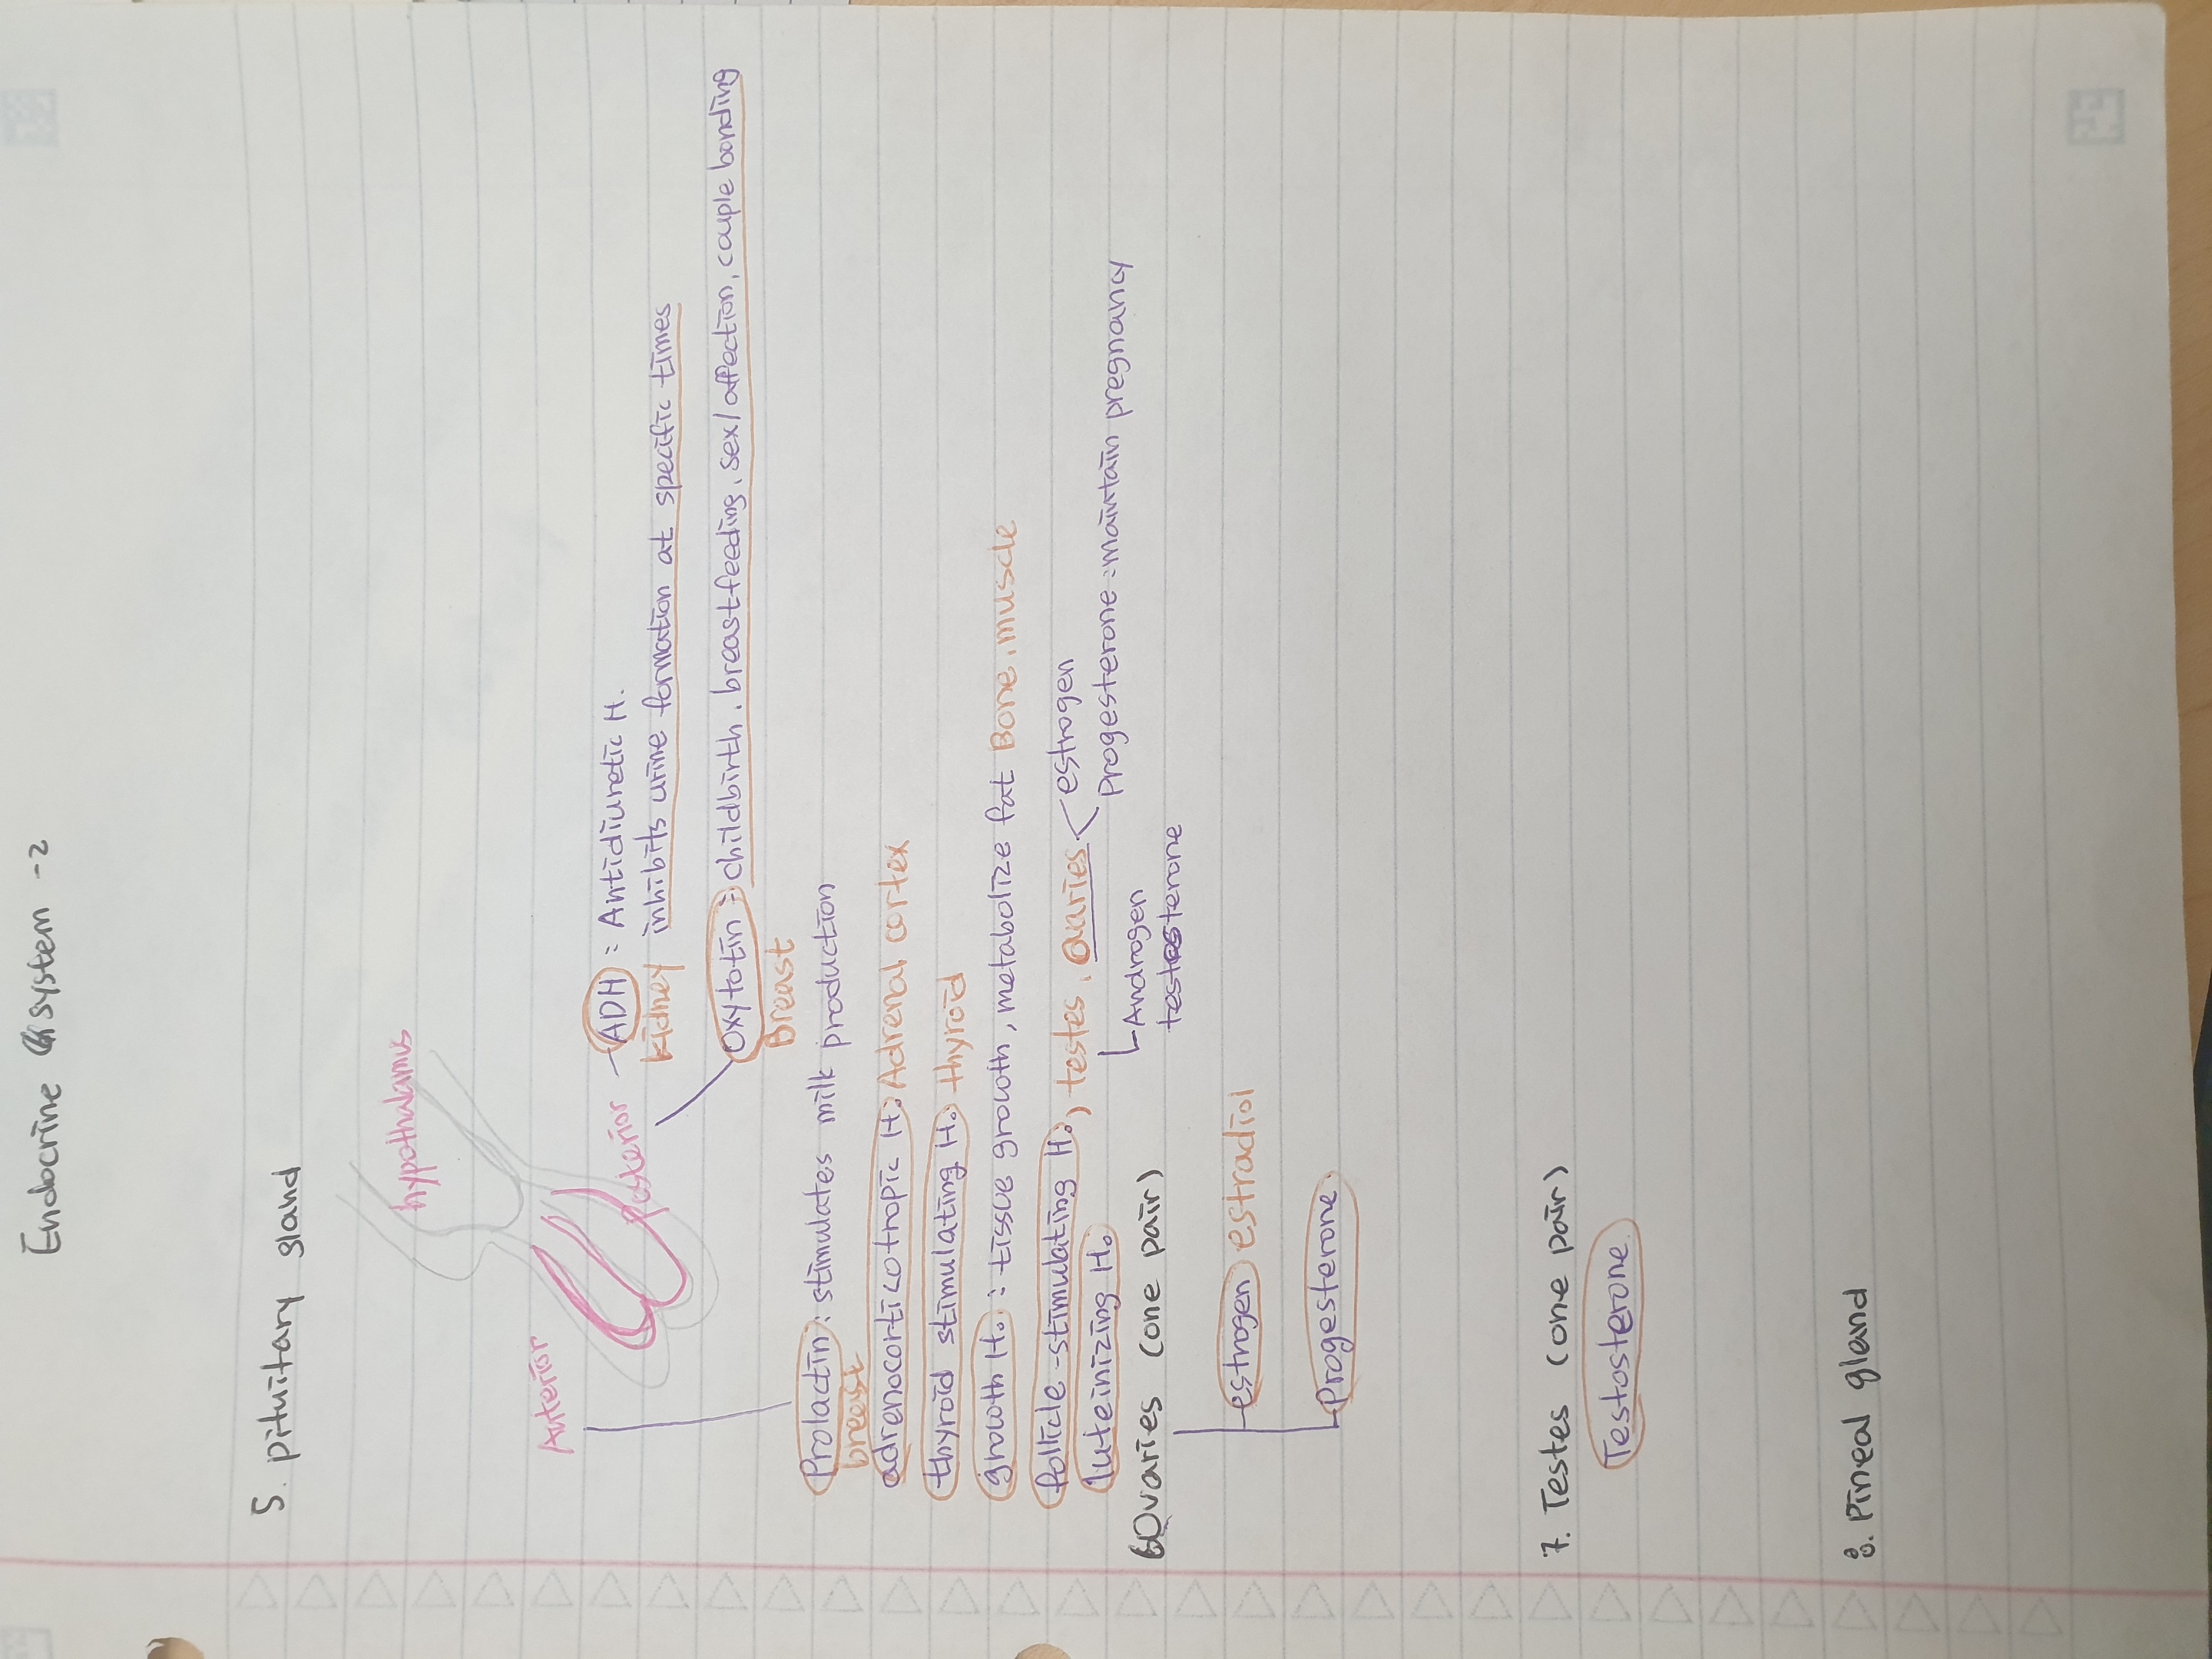 Endocrine system -2
5. pituitary gland
hypothalamus
Anterior
posterior
ADH : Antidiuretic H.
kidney inhibits urine formation at specific times
Oxytotin : childbirth, breastfeeding, sex/affection, couple bonding
Breast
Prolactin : stimulates milk production
breast
adrenocorticotropic H. Adrenal cortex
thyroid stimulating H. thyroid
growth H. : tissue growth, metabolize fat Bone, muscle
follicle-stimulating H. testes, ovaries estrogen
luteinizing H. Androgen Progesterone : maintain pregnancy
testosterone
6 Ovaries (one pair)
estrogen estradiol
Progesterone
7. Testes (one pair)
Testosterone
8. Pineal gland